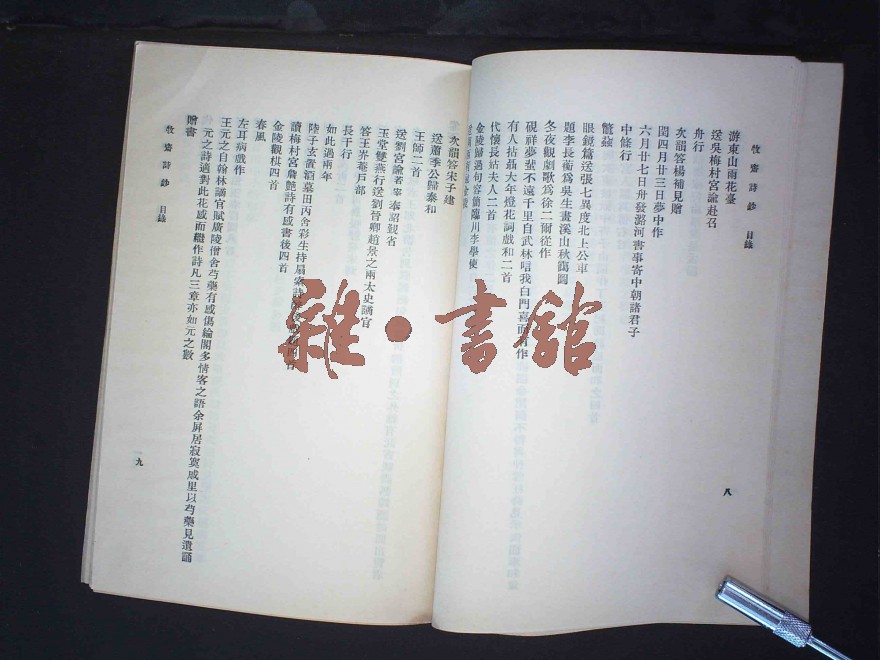 牧齋詩鈔 目錄
游東山雨花臺
送吳梅村宮諭赴召
舟行
次韻答楊補見贈
閏四月廿三日夢中作
六月廿七日舟發潞河書事寄中朝諸君子
中條行
簷
眼鏡篇送張七異度北上公車
題李長蘅為吳生畫溪山秋靄圖
冬夜觀劇歌為徐二爾從作
硯祥夢蜚不遠千里自武林唁我白門喜而有作
有人拈聶大年燈花詞戲和二首
代懷長姑夫人二首
金陵歸過句容簡臨川李學使
八
次韻答宋子建
送蕭季公歸泰和
王師二首
送劉宮諭奉詔覲省
玉堂雙燕行送劉晉卿趙景之兩太史謫官
答王岕菴戶部
長干行
如此過兩年
陸子玄置酒墓田丙舍彩生持扇索詩
讀梅村宮詹艷詩有感書後四首
金陵觀棋四首
春風
左耳病戲作
王元之自翰林謫官賦廣陵僧舍芍藥有感傷綸閣多情客之語余屏居寂寞戚里以芍藥見遺誦
元之詩適對此花感而繼作詩凡三章亦如元之數
贈書
牧齋詩鈔 目錄
九
雜·書館